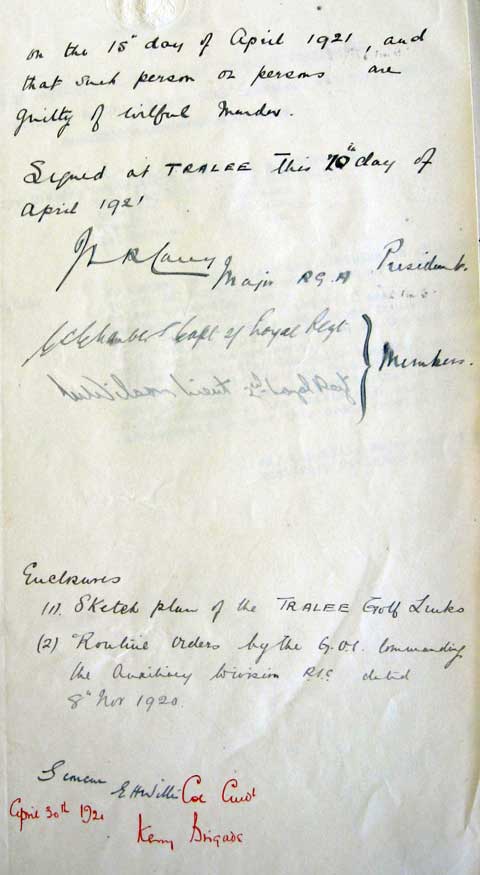 on the 15th day of April 1921, and
that such person or persons are
guilty of wilful Murder.
Signed at TRALEE this 20th day of
April 1921
Major RGA President.
Capt Loyal Regt
Members.
Lieut Loyal Regt
Enclosures
(1). Sketch plan of the TRALEE Golf Links
(2) Routine Orders by the G.O.C. Commanding
the Auxiliary Division R.I.C dated
8th Nov 1920.
Col Cmdt
April 30th 1921
Kerry Brigade